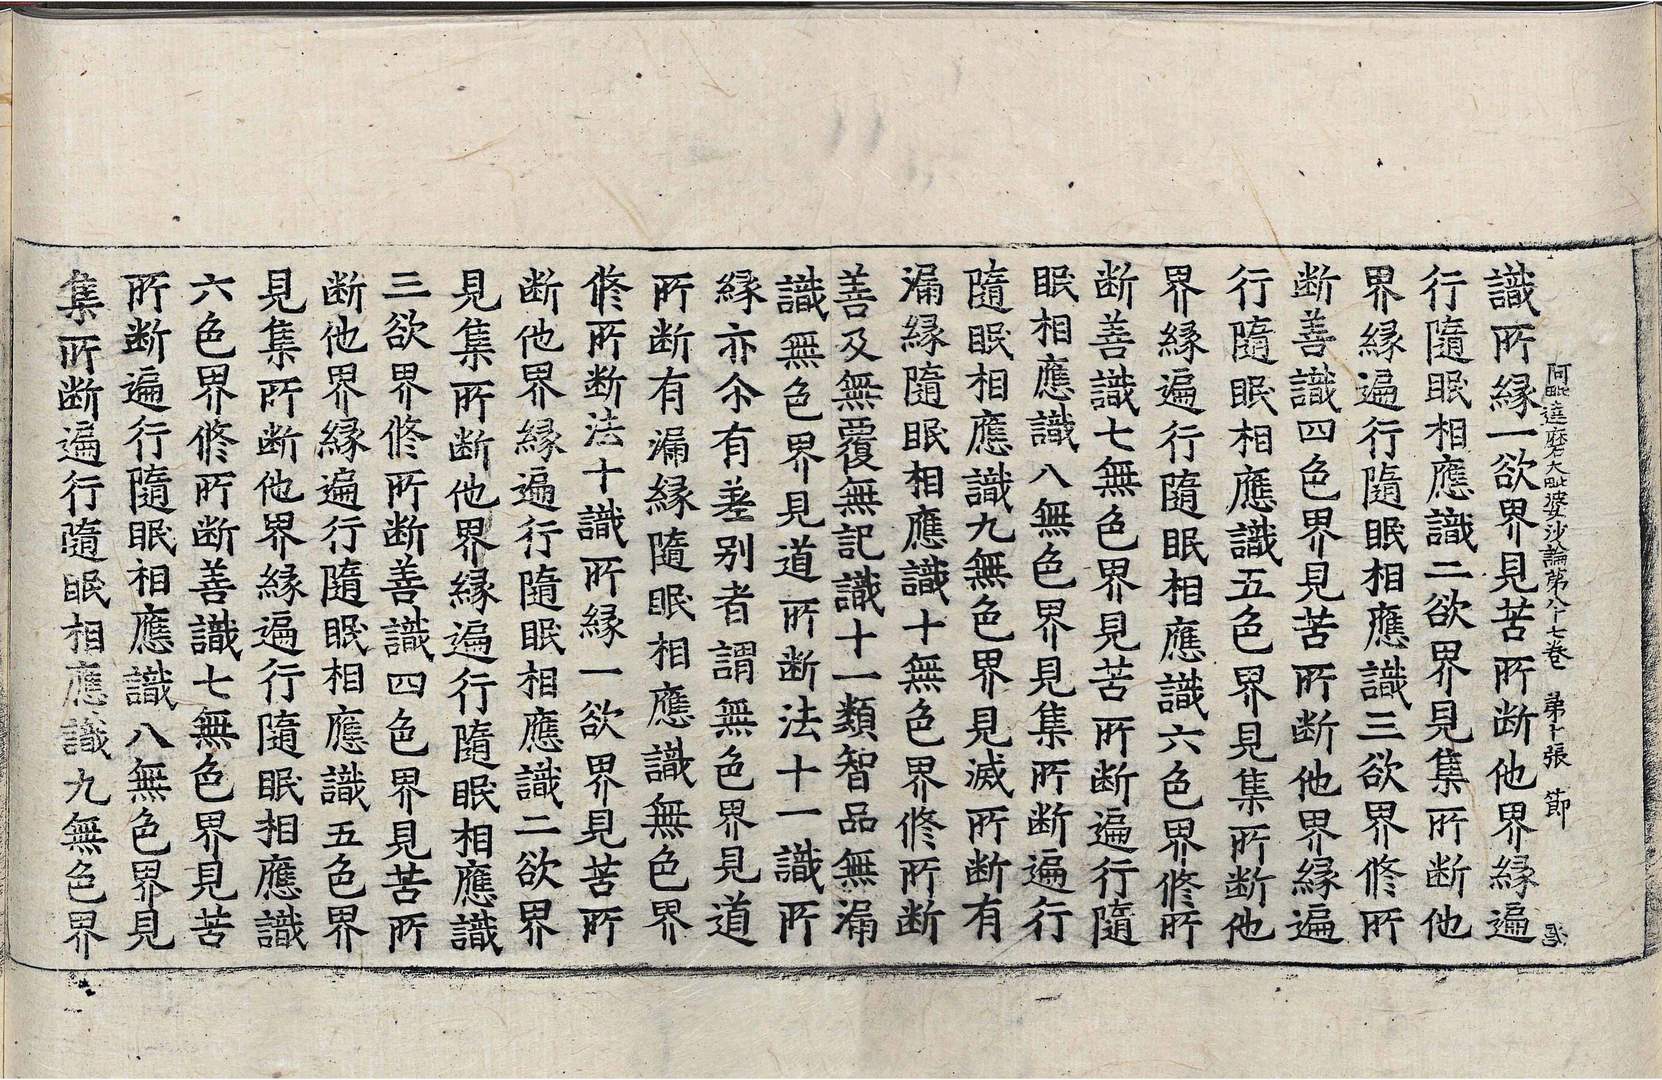 阿毗達磨大毗婆沙論第八十七卷 第十張 節
識所縁一欲界見苦所断他界縁遍
行隨眠相應識二欲界見集所断他
界縁遍行隨眠相應識三欲界修所
断善識四色界見苦所断他界縁遍
行隨眠相應識五色界見集所断他
界縁遍行隨眠相應識六色界修所
断善識七無色界見苦所断遍行隨
眠相應識八無色界見集所断遍行
隨眠相應識九無色界見滅所断有
漏縁隨眠相應識十無色界修所断
善及無覆無記識十一類智品無漏
識無色界見道所断法十一識所
縁亦尒有差别者謂無色界見道
所断有漏縁隨眠相應識無色界
修所断法十識所縁一欲界見苦所
断他界縁遍行隨眠相應識二欲界
見集所断他界縁遍行隨眠相應識
三欲界修所断善識四色界見苦所
断他界縁遍行隨眠相應識五色界
見集所断他界縁遍行隨眠相應識
六色界修所断善識七無色界見苦
所断遍行隨眠相應識八無色界見
集所断遍行隨眠相應識九無色界